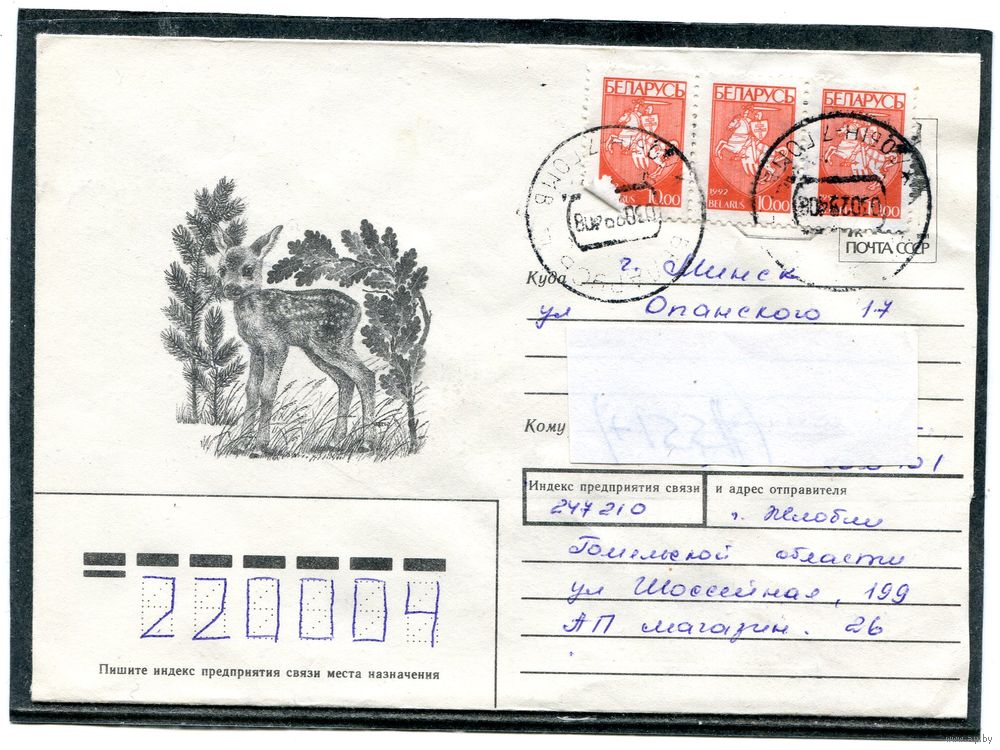 БЕЛАРУСЬ БЕЛАРУСЬ БЕЛАРУСЬ
1992
RUS 10.00 BELARUS 10.00
ПОЧТА СССР
Куда г. Минск
ул Опанского 17
Кому
Индекс предприятия связи и адрес отправителя
247210 г. Жлобин
Гомельской области
ул Шоссейная, 199
АП магазин. 26
220004
Пишите индекс предприятия связи места назначения